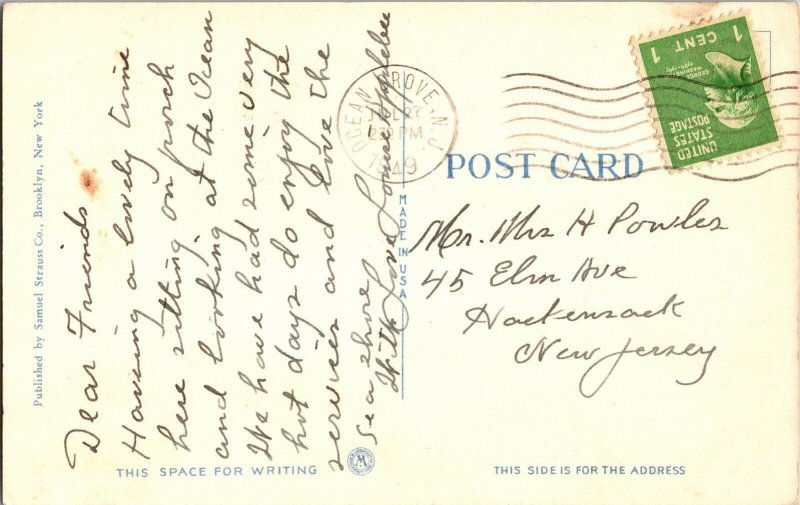 Published by Samuel Strauss Co., Brooklyn, New York
Dear Friends
Having a lovely time
here sitting on porch
and looking at the Ocean
We have had some very
hot days do enjoy the
services and love the
Sea shore
With Love
THIS SPACE FOR WRITING
MADE IN USA
OCEAN GROVE, N.J.
JUL 27
PM
1949
1 CENT 1
GEORGE WASHINGTON
UNITED
STATES
POSTAGE
POST CARD
Mr. Mrs H Powles
45 Elm Ave
Hackensack
New Jersey
THIS SIDE IS FOR THE ADDRESS